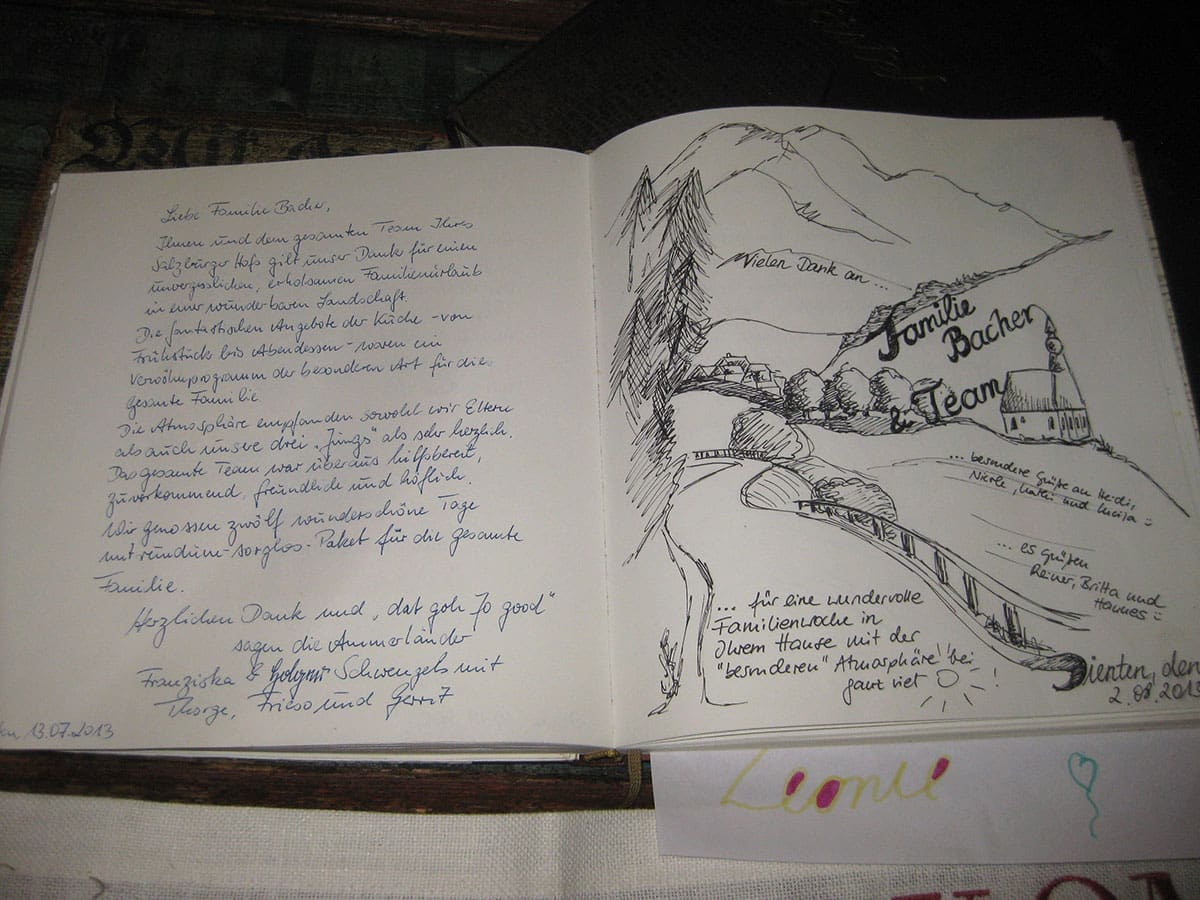 Mit
Liebe Familie Bacher,
Ihnen und dem gesamten Team Ihres
Salzburger Hofs gilt unser Dank für einen
unvergesslichen, erholsamen Familienurlaub
in einer wunderbaren Landschaft.
Die fantastischen Angebote der Küche - von
Frühstück bis Abendessen - waren ein
Verwöhnprogramm der besonderen Art für die
gesamte Familie.
Die Atmosphäre empfanden sowohl wir Eltern
als auch unsere drei „Jungs" als sehr herzlich.
Das gesamte Team war überaus hilfsbereit,
zuvorkommend, freundlich und höflich.
Wir genossen zwölf wunderschöne Tage
mit rundum-sorglos-Paket für die gesamte
Familie.
Herzlichen Dank und „dat goh Jo good"
sagen die Ammerländer
Franziska & Schwengels mit
Thorge, Frieso und Gerrit
13.07.2013
Vielen Dank an ...
Familie
Bacher
& Team
... besondere Grüße an Heidi,
und
... es grüßen
Reiner, Britta und
Hannes
... für eine wundervolle
Familienwoche in
Ihrem Hause mit der
"besonderen" Atmosphäre! bei
ganz viel !
Dienten, den
2.08.2013
Leonie